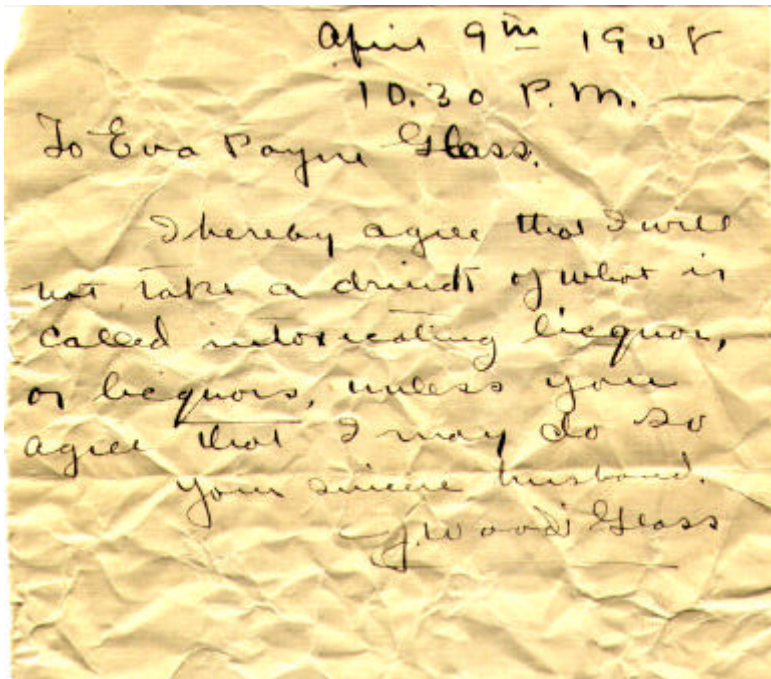 April 9th 1908
10.30 P.M.
To Eva Payne Glass.
I hereby agree that I will
not take a drink of what is
called intoxicating licquor,
or licquors, unless you
agree that I may do so
Your sincere husband.
J. Wood Glass